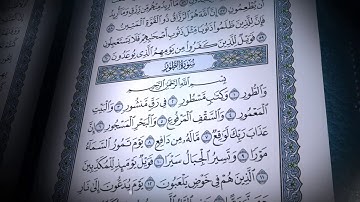 أَن يُطْعِمُونِ ۝ إِنَّ ٱللَّهَ هُوَ ٱلرَّزَّاقُ ذُو ٱلْقُوَّةِ ٱلْمَتِينُ
فَإِنَّ لِلَّذِينَ ظَلَمُوا۟ ذَنُوبًا مِّثْلَ ذَنُوبِ أَصْحَٰبِهِمْ فَلَا يَسْتَعْجِلُونِ
فَوَيْلٌ لِّلَّذِينَ كَفَرُوا۟ مِن يَوْمِهِمُ ٱلَّذِى يُوعَدُونَ
سُورَةُ الطُّورِ
بِسْمِ ٱللَّهِ ٱلرَّحْمَٰنِ ٱلرَّحِيمِ
وَٱلطُّورِ ١ وَكِتَٰبٍ مَّسْطُورٍ ٢ فِى رَقٍّ مَّنشُورٍ ٣ وَٱلْبَيْتِ
ٱلْمَعْمُورِ ٤ وَٱلسَّقْفِ ٱلْمَرْفُوعِ ٥ وَٱلْبَحْرِ ٱلْمَسْجُورِ ٦ إِنَّ
عَذَابَ رَبِّكَ لَوَٰقِعٌ ٧ مَّا لَهُۥ مِن دَافِعٍ ٨ يَوْمَ تَمُورُ ٱلسَّمَآءُ
مَوْرًا ٩ وَتَسِيرُ ٱلْجِبَالُ سَيْرًا ١٠ فَوَيْلٌ يَوْمَئِذٍ لِّلْمُكَذِّبِينَ
١١ ٱلَّذِينَ هُمْ فِى خَوْضٍ يَلْعَبُونَ ١٢ يَوْمَ يُدَعُّونَ إِلَىٰ نَارِ